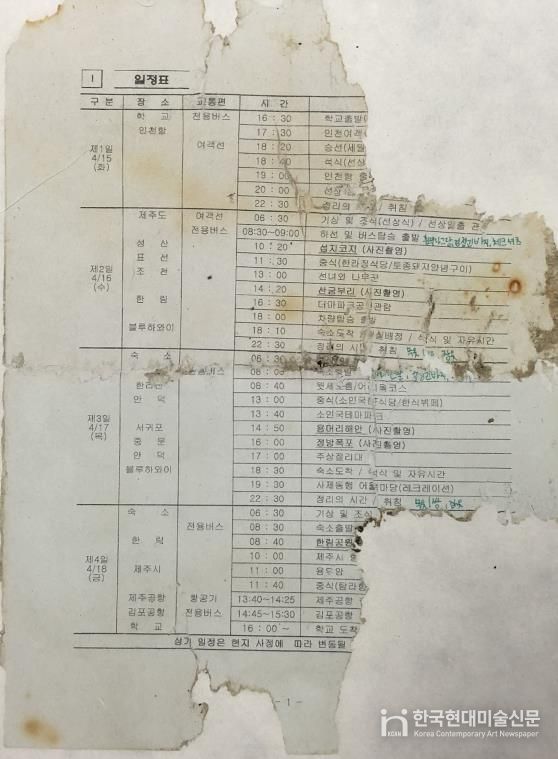 I 일정표
구 분 장 소 교통편 시 간
제1일 4/15 (화)
학 교 전용버스 16 : 30 학교출발
인천항 17 : 30 인천여객
여객선 18 : 20 승선(세월
18 : 40 석식(선상
19 : 00 인천항
20 : 00 선상
22 : 30 정리의 / 취침
제2일 4/16 (수)
제주도 여객선 06 : 30 기상 및 조식(선상식) / 선상일출 관
전용버스 08:30~09:00 하선 및 버스탑승 출발
성 산 10 : 20 섭지코지 (사진촬영)
표 선 11 : 30 중식(한라정식당/토종돼지양념구이)
조 천 13 : 00 선녀와 나무꾼
14 : 20 산굼부리 (사진촬영)
한 림 16 : 30 더마파크공연관람
18 : 00 차량탑승 출발
블루하와이 18 : 10 숙소도착 / 실배정 / 석식 및 자유시간
22 : 30 정리의 시간 / 취침
제3일 4/17 (목)
숙 소 06 : 30
08 : 00 숙소출발
한라산 08 : 40 윗세오름/어리목코스
안 덕 13 : 00 중식(소인국 식당/한식뷔페)
13 : 40 소인국테마파크
서귀포 14 : 50 용머리해안 (사진촬영)
중 문 16 : 00 정방폭포 (사진촬영)
안 덕 17 : 00 주상절리대
블루하와이 18 : 30 숙소도착 / 석식 및 자유시간
19 : 30 사제동행 어울마당(레크레이션)
22 : 30 정리의 시간 / 취침
제4일 4/18 (금)
숙 소 06 : 30 기상 및 조식
전용버스 08 : 30 숙소출발
한 림 08 : 40 한림공원
제주시 10 : 00 제주시
11 : 00 용두암
11 : 40 중식(탐라
제주공항 항공기 13:40~14:25 제주공항
김포공항 전용버스 14:45~15:30 김포공항
학 교 16 : 00 ~ 학교 도착
상기 일정은 현지 사정에 따라 변동될
- 1 -
KCAN 한국현대미술신문
Korea Contemporary Art Newspaper